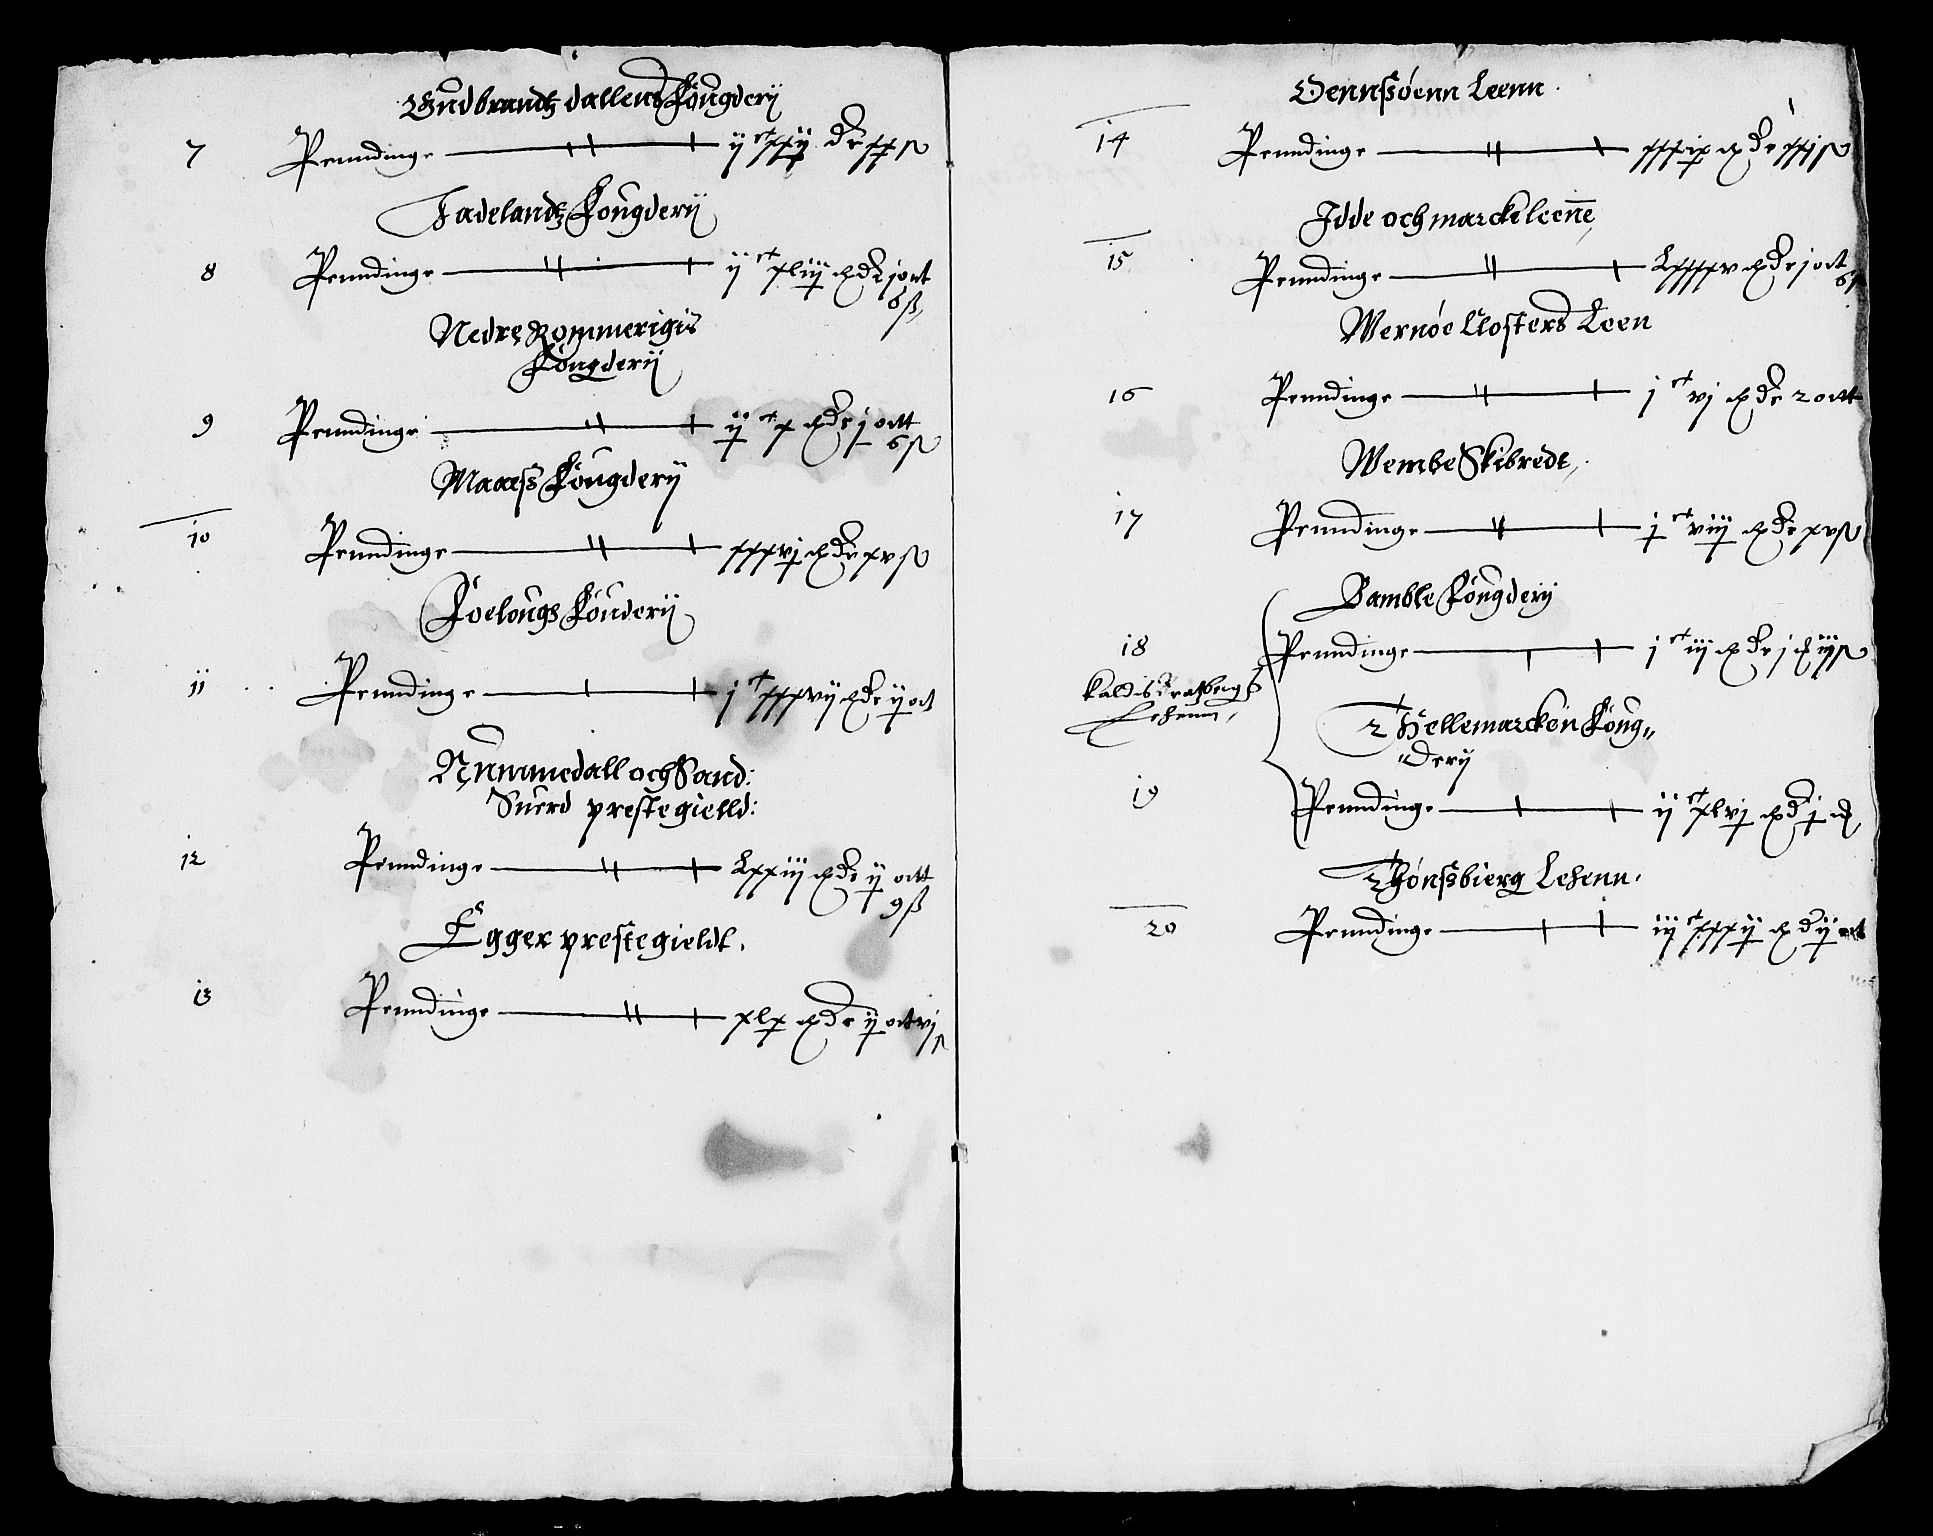 Gudbrandtz dallens Fougderij
7 Penndinge ijc xxij dr xx ß
Hadelandtz Fougderij
8 Penndinge ijc xliij dr j ort
6 ß,
Nedre Rommerigis
Fougderij
9 Penndinge ijc x dr j ortt
6 ß
Maaess Fougderij
10 Penndinge xxxvj dr xv ß
Foelougs Fouderij
11 Penndinge jc xxxvij dr ij ort
Nummedall och Sand:
Suerd prestegielld:
12 Penndinge Lxxiij dr ij ortt
9 ß
Egger prestegieldt.
13 Penndinge xlx dr ij ort vj
ß
Oennsøenn Leenn.
14 Penndinge xxxix dr xxj ß
Idde och marcke leenne,
15 Penndinge Lxxxxv dr j ort
6 ß
Wernøe Closters Leen
16 Penndinge jc vj dr 2 ortt
Wembe Skibrede,
17 Penndinge jc viij dr xv ß
Bamble Fougderij
18 Penndinge jc iij dr j ß
Kaldis Bratzberg
Lehenn,
Thellemarcken Foug„
„derij
19 Penndinge ijc xlvj dr j
Thønssbierg Lehenn.
20 Penndinge iijc xxxij dr ij ort